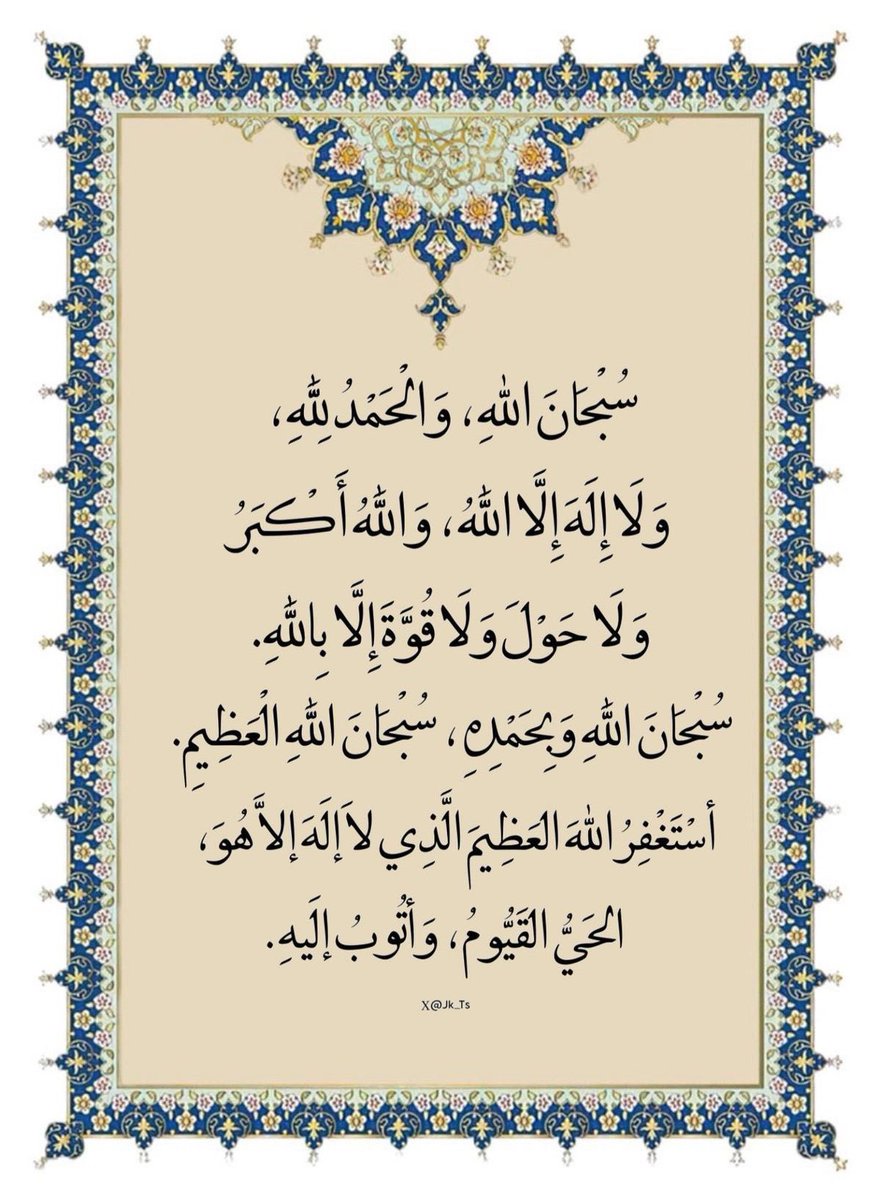 سُبْحَانَ اللّٰهِ، وَالْحَمْدُ لِلّٰهِ،
وَلَا إِلَهَ إِلَّا اللّٰهُ، وَاللّٰهُ أَكْبَرُ
وَلَا حَوْلَ وَلَا قُوَّةَ إِلَّا بِاللّٰهِ.
سُبْحَانَ اللّٰهِ وَبِحَمْدِهِ، سُبْحَانَ اللّٰهِ الْعَظِيمِ.
أسْتَغْفِرُ اللّٰهَ العَظِيمَ الَّذِي لاَ إلَهَ إلاَّ هُوَ،
الحَيُّ القَيُّومُ، وَأتُوبُ إلَيهِ.
X@Jk_Ts